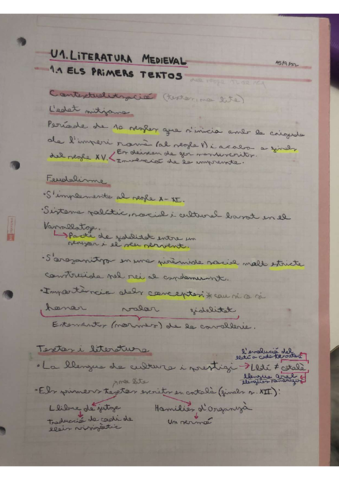 U1. LITERATURA MEDIEVAL
1.1 ELS PRIMERS TEXTOS
Contextualització
L'edat mitjana
Període de 10 segles que s'inicia amb la caiguda
de l'imperi romà (al segle V) i acaba a finals
del segle XV
Es deixen de fer manuscrits.
Invenció de la impremta.
Feudalisme
• S'implementa al segle X-XI
• Sistema polític, social i cultural basat en el
Vassallatge.
Pacte de fidelitat entre un
senyor i el seu servent.
• S'organitza en una piràmide social molt estricta
construïda pel rei al capdamunt.
• Importància dels conceptes:
honor valor fidelitat
Estaments (normes) de la cavalleria.
Textos i literatura
l'evolució del
llatí a cada territori
• La llengua de cultura i prestigi → Llatí ≠ català
• Els primers textos escrits en català (finals s. XII):
Llibre de jutge
Homilies d'Organyà
Traducció de codi de
lleis visigòtic
Un sermó